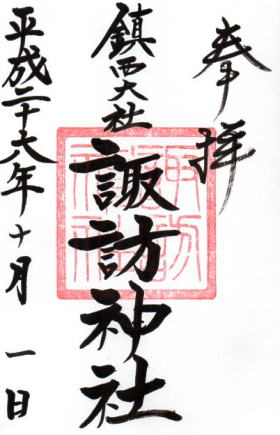 奉拝
鎮西大社
諏訪神社
平成二十六年十月一日